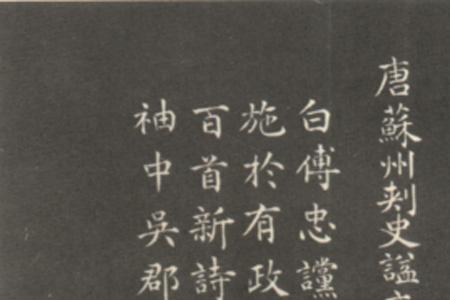 唐蘇州刺史謚
白傅忠讜
施於有政
百首新詩
袖中吳郡